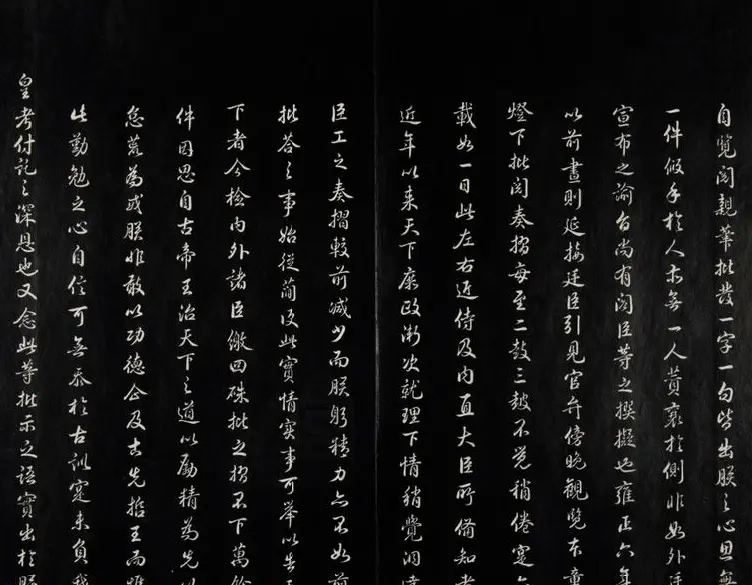 自覽閱親筆批發一字一句皆出朕之心思無
一件假手於人亦無一人贊襄於側非如外廷
宣布之諭旨尚有閣臣等之撰擬也雍正六年
以前晝則延接廷臣引見官弁傍晚觀覽本章
燈下批閱奏摺每至二鼓三鼓不覺稍倦寔六
載如一日此左右近侍及內直大臣所備知者
近年以來天下庶政漸次就理下情稍覺洞達
臣工之奏摺較前減少而朕躬精力亦不如前
批答之事始從簡便此實情實事可舉以告天
下者今檢內外諸臣繳回硃批之摺不下萬餘
件因思自古帝王治天下之道以勵精為先以
怠荒為戒朕非敢以功德企及古先哲王而惟
此勤勉之心自信可無忝於古訓寔未負我
皇考付託之深恩也又念此等批示之語實出於朕